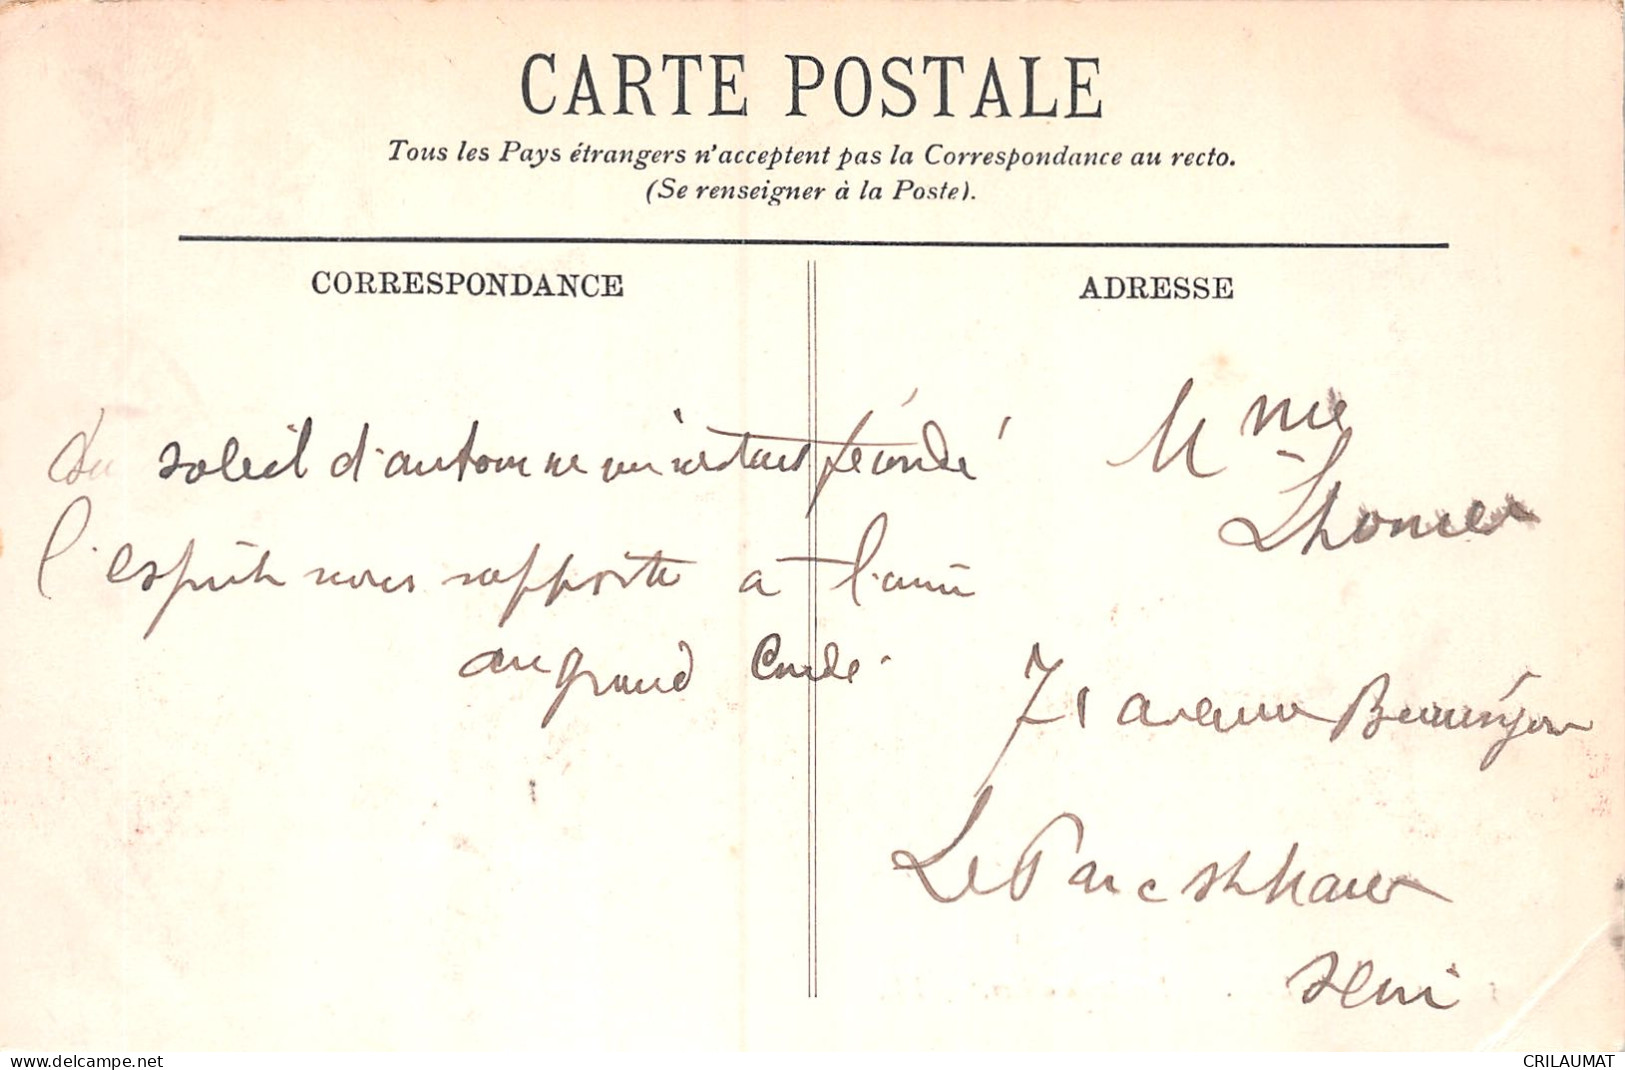 CARTE POSTALE
Tous les Pays étrangers n'acceptent pas la Correspondance au recto.
(Se renseigner à la Poste).
CORRESPONDANCE
ADRESSE
du soleil d'automne féconde
l'esprit nous apporte à l'ami
au grand Condé.
Mme
Lhomer
71 avenue
Le Parc St Maur
Seine
www.delcampe.net
CRILAUMAT